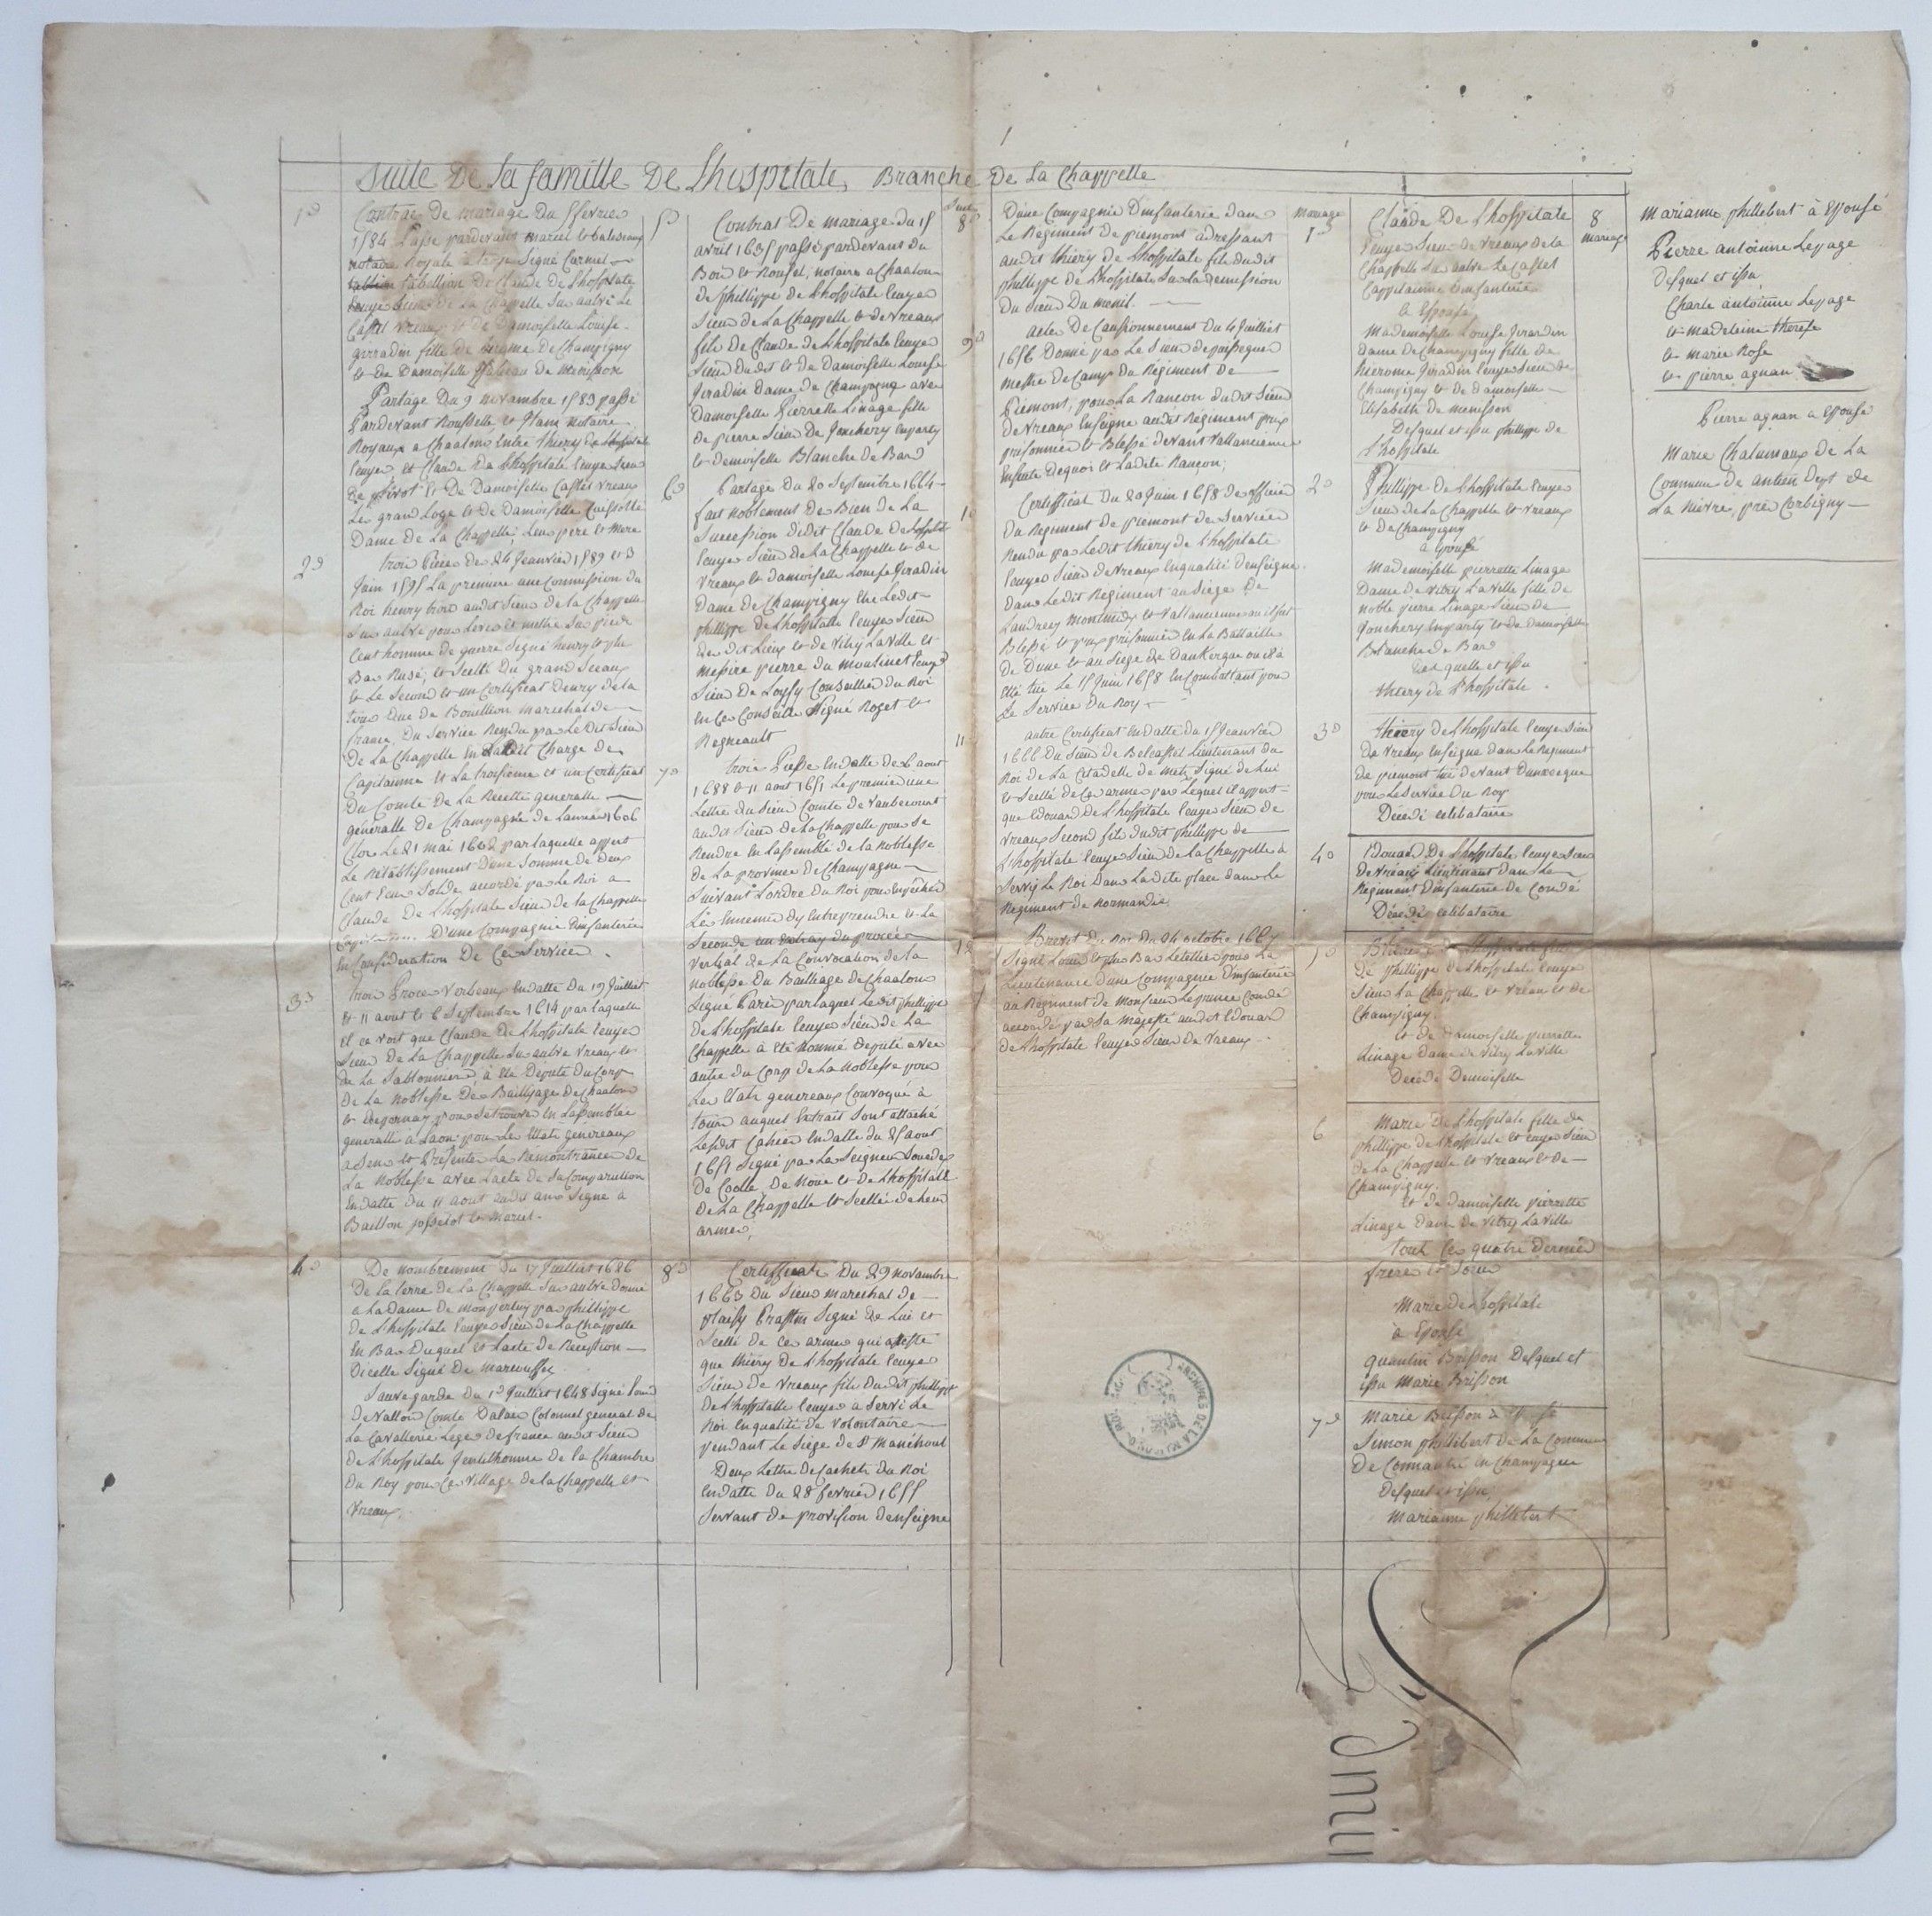 Suite De la famille De Lhospitale, Branche De La Chappelle
1º
Contrat De mariage du fevrier
1584 Passé pardevant marcel et
notaire Royale a troye Signé Carmel
tabellion De Claude De Lhospitale
Ecuyer Sieur De La Chappelle Sur aulve Le
Castel Vreaux et De Damoiselle Louise
girradin fille De De Champigny
et De Damoiselle De Menisson
Partage Du 9 novembre 1583 passé
Pardevant Rousselle et notaire
Royaux a Chaalons Entre thiery De Lhospitale
Ecuyer et Claude De Lhospitale Ecuyer Sieur
De Pivot et De Damoiselle Castel Vreaux
Le grand Loge et De Damoiselle
Dame De La Chappelle, Leur pere et mere
2º
trois Pieces De 24 Jeanvier 1589 et 3
Juin 1595 La premiere une Commission du
Roi henry trois audit Sieur de la Chappelle
Sur aulve pour Lever et mettre Sur pied
Cent homme de guerre Signé henry et plus
Bas Rusé, et Scellé Du grand Sceaux
et Le Second et un Certificat Denry de la
tour Duc de Bouillion marechal de
france, Du Service Rendu par Le Dit Sieur
De La Chappelle En Laditte Charge de
Capitainne et La troisieme et un Certificat
Du Comte De La Recette generalle
generalle De Champagne de Lannée 1606
Clos Le 21 mai 1602 par laquelle appert
Le Retablissement Dune Somme de Deux
Cent Ecus Solde accordé par Le Roi a
Claude De Lhospitale Sieur de la Chappelle
Capitainne D'une Compagnie Dinfanterie
En Consideration De Ces Services.
3º
trois Procès Verbeaux En datte Du 19 Juilliet
et 11 aout et 6 Septembre 1614 par Laquelle
il ce voit que Claude De Lhospitale Ecuyer
Sieur De La Chappelle Sur aulve Vreaux et
De La Sablonniere, à Eté Député Du Corp
De La Noblesse De Bailliage De Chaalons
et Depernay pour Setrouver En Lassemblée
generalle à Laon pour Les Etats genereaux
a Sens et Présenter La Remontrances de
La Noblesse avec Lacte de Sa Comparution
En datte du 11 aout audit an Signé à
Baillon josselot et Marcel.
4º
De nombrement Du 17 Juilliet 1686
De La terre De La Chappelle Sur aulve Donné
a La Dame De par phillippe
De Lhospitale Ecuyer Sieur De La Chappelle
En Bas Duquel et Lacte De Reception
Dicelle Signé De
Sauvegarde Du 1er Juilliet 1648 Signé Louis
De Vallois Comte Dalais Colonnel general De
La Cavallerie Legere de france audit Sieur
De Lhospitale Gentilhomme de la Chambre
Du Roy pour Ces Village de la Chappelle et
Vreaux.
5º
Contrat De mariage Du 15
avril 1635 passé pardevant du
Bois et Roussel, notaire a Chaalons
De Phillippe de Lhospitale Ecuyer
Sieur De La Chappelle et de Vreaux
fils De Claude de Lhospitale Ecuyer
Sieur Dudit et De Damoiselle Louise
Jeradin Dame De Champagne avec
Damoiselle Pierrette Linage, fille
De pierre Sieur De Jonchery En party
et demoiselle Blanche De Bar
6º
Partage Du 20 Septembre 1664
fait noblement De Bien De La
Succession Dudit Claude De Lhospitale
Ecuyer Sieur De La Chappelle et de
Vreaux et damoiselle Louise Jeradin
Dame De Champigny Entre Ledit
phillippe De Lhospitalle Ecuyer Sieur
Des dit Lieux et de Vitry La Ville et
messire pierre Du moulinet Ecuyer
Sieur De Conseiller Du Roi
En Ces Conseille Signé Roget et
Regneault
7º
trois Piesse En datte De 6 aout
et 11 aout 1651 Le premier une
Lettre du Sieur Comte De Vaubecourt
audit Sieur De La Chappelle pour Se
Rendre En Lassemblé de la Noblesse
De La province De Champagne
Suivant Lordre Du Roi pour Enpecher
Les Ennemis Dy Entreprendre et La
Seconde un Extray du procès
Verbal De La Convocation de la
noblesse Du Bailliage De Chaalons
Signé Paris par Laquel Le dit phillippe
De Lhospitale Ecuyer Sieur De La
Chappelle à Eté Nommé Deputé avec
autre du Corp De La Noblesse pour
Les Etats genereaux Convoqué à
tours auquel Extrait Sont attaché
Lesdit Cahier En datte du 25 aout
1651 Signé par Les Seigneur
De De Noue et De Lhospitalle
De La Chappelle et Scellée de Leur
armes,
8º
Certifficats Du 29 novembre
1663 Du Sieur marechal De
Plaissy Praslin Signé De Lui et
Scellé de Ces armes qui atteste
que thiery De Lhospitale Ecuyer
Sieur De Vreaux fils Dudit phillippe
De Lhospitalle Ecuyer a Servi Le
Roi En qualité de Volontaire
pendant Le Siege de St Manéhoul
Deux Lettre De Cachets Du Roi
En datte Du 28 fevrier 1655
Servant De provision Denseigne
Suite
8º
D'une Compagnie Dinfanterie Dans
Le Regiment De piemont adressant
audit thiery de Lhospitale fils Dudit
phillippe De Lhospitale Sur La Demission
Du Sieur Du menil.
9º
acte De Caussionnement Du 4 Juilliet
1656 Donné par Le Sieur De
mestre De Camp Du Régiment De
Piemont, pour La Rancon Dudit Sieur
De Vreaux Enseigne audit Regiment pris
prisonnier et Blessé devant Vallancienne
Ensuite Dequoi et Ladite Rançon;
10
Certifficat Du 20 Juin 1658 De officier
Du Regiment De piemont De Services
Rendu par Ledit thiery De Lhospitale
Ecuyer Sieur De Vreaux En qualité Denseigne
Dans Ledit Régiment au Siege De
Landrecy montmedy et Vallancienne ou il fut
Blessé et pris prisonnier En La Bataille
De Dune et au Siege De Dankerque ou il à
Eté tué Le 15 Juin 1658 En Combattant pour
Le Service Du Roy
11
autre Certificat En datte du 15 Jeanvier
1666 Du Sieur De Belcastel Lieutenant Du
Roi De La Citadelle de Metz Signé de Lui
et Scellé De Ces armes par Lequel il appert
que Edouard De Lhospitale Ecuyer Sieur De
Vreaux Second fils Dudit phillippe De
Lhospitale Ecuyer Sieur De La Chappelle à
Servy Le Roi Dans La dite place dans Le
Régiment De Normandie
12
Brevet Du Roi Du 24 octobre 1667
Signé Louis et plus Bas Letellier pour La
Lieutenance Dune Compagnie Dinfanterie
au Regiment De Monsieur Le prince Condé
accordé par Sa Majesté audit Edouard
De Lhospitale Ecuyer Sieur De Vreaux
Mariage
1º
Claude De Lhospitale
Ecuyer Sieur De Vreaux De La
Chappelle Sur aulve Le Castel
Cappitainne Dinfanterie
à Epousé
Mademoiselle Louise Jerardin
Dame De Champigny fille De
hierome Jeradin Ecuyer Sieur De
Champigny et De damoiselle
Elisabeth De menisson
Desquel et issu phillippe De
Lhospitale
2º
Phillippe De Lhospitale Ecuyer
Sieur De La Chappelle et Vreaux
et De Champigny
à Epousé
Mademoiselle pierrette Linage
Dame De Vitry La Ville fille De
Noble pierre Linage Sieur De
Jonchery En party et De Damoiselle
Blanche De Bar
Desquelle et issu
thiery de Lhospitale.
3º
thiery De Lhospitale Ecuyer Sieur
De Vreaux Enseigne Dans Le Regiment
De piemont tué devant Dunkerque
pour Le Service Du Roy
Décédé celibataire
4º
Edouard De Lhospitale Ecuyer Sieur
De Vréaux Lieutenant Dans Le
Regiment Dinfanterie De Condé
Décédé celibataire
5º
Lhospitale fille
De phillippe De Lhospitale Ecuyer
Sieur La Chappelle et Vréau et De
Champigny
et de Damoiselle pierrette
Linage Dame De Vitry La Ville
Décédé Demoiselle
6
Marie De Lhospitale fille De
phillippe De Lhospitale Ecuyer Sieur
De La Chappelle et Vreaux et De
Champigny.
et De Damoiselle pierrette
Linage Dame De Vitry La Ville
tout Ces quatre Dernier
frere et Soeur
Marie De Lhospitale
à Epousé
quantin Brisson Desquel et
issu Marie Brisson
7º
Marie Brisson à Epousé
Simon phillibert De La Commune
De Connantré En Champagne
Desquel et issu
Marianne phillebert
8
Mariage
Marianne phillebert à Epousé
Pierre antoinne Lepage
Desquel et issu
Charle antoinne Lepage
et madeleine therese
et marie Rose
et pierre agnan
Pierre agnan a Epousé
Marie Chalumaux de La
Commune De antien Dept de
La Nievre, près Corbigny
ARCHIVES DE LA